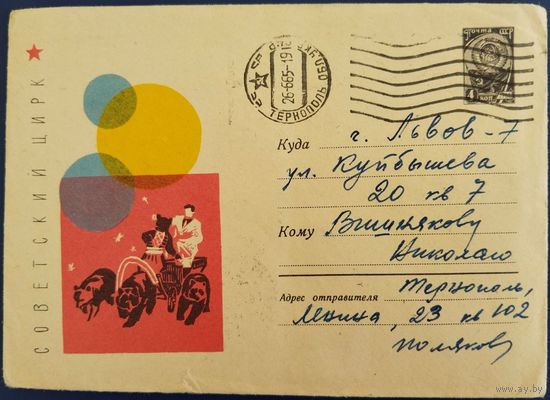 СОВЕТСКИЙ ЦИРК
ТЕРНОПОЛЬ ОБЛ
26-665-19
ПОЧТА СССР
4 коп
Куда г. Львов-7
ул. Куйбышева
20 кв 7
Кому Вишнякову
Николаю
Тернополь,
Адрес отправителя
Ленина, 23 кв 102
Поляков
www.ay.by